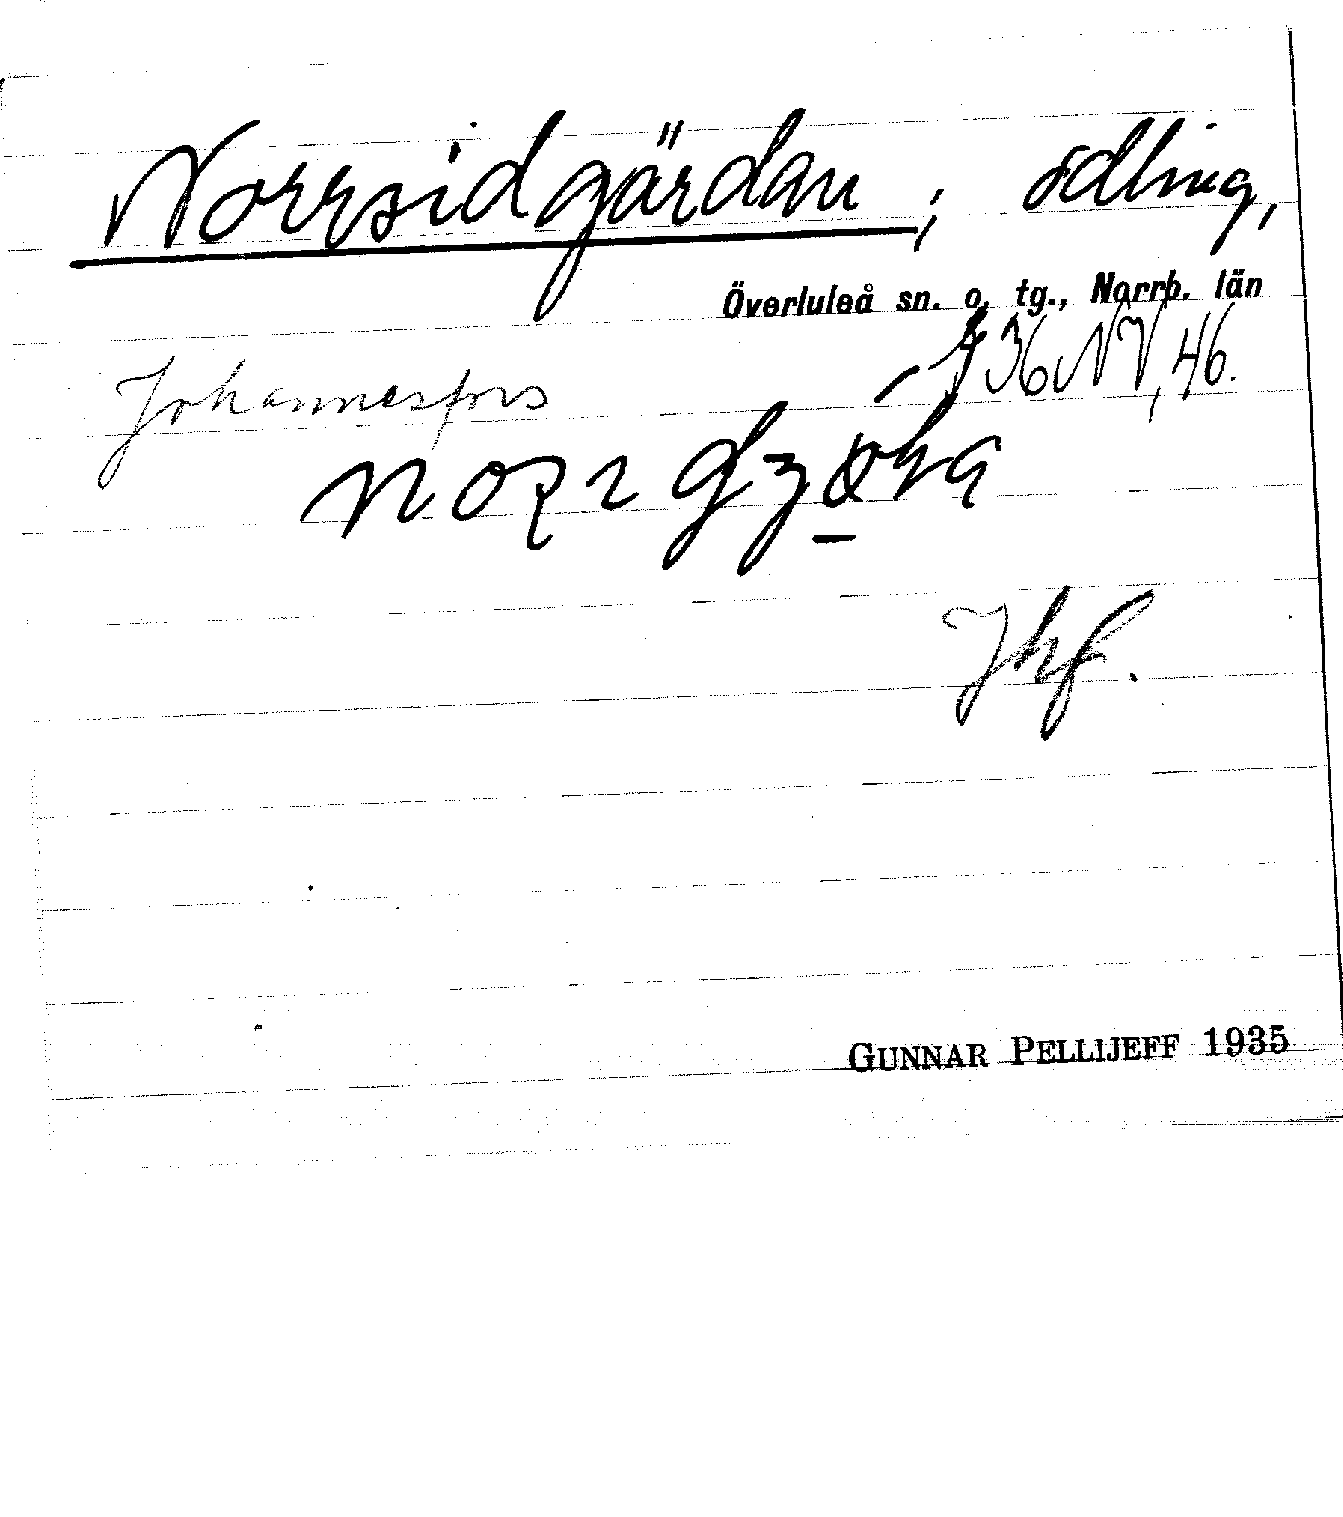 Norrsidgärdan; odling,
Överluleå sn. o. tg., Norrb. län
Johannesfors 36 NV, 46.
Jhf.
GUNNAR PELLIJEFF 1935